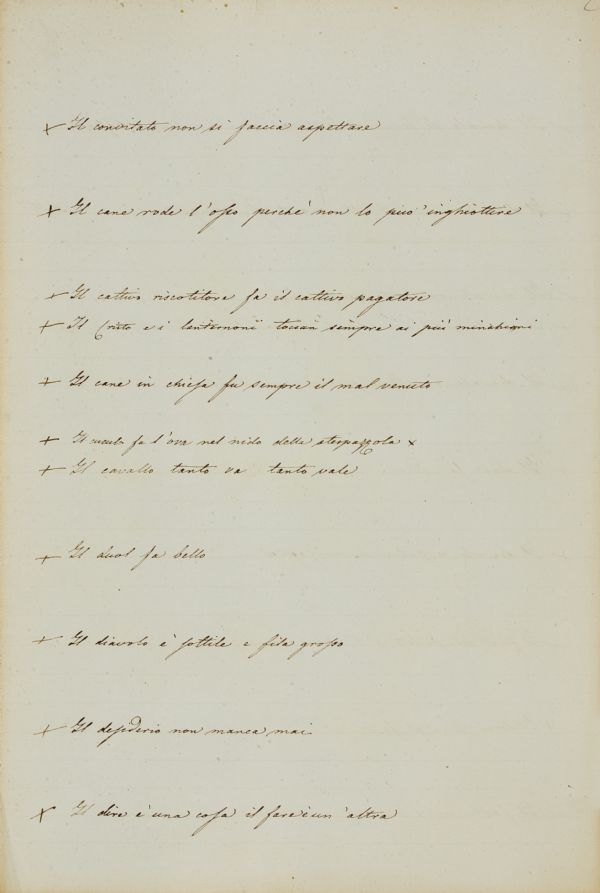 + Il convitato non si faccia aspettare
+ Il cane rode l'osso perchè non lo può inghiottire
+ Il cattivo riscotitore fa il cattivo pagatore
+ Il Cristo e i lanternoni toccan sempre ai più minchioni
+ Il cane in chiesa fu sempre il mal venuto
+ Il cuculo fa l'ova nel nido della sterpazzola x
+ Il cavallo tanto va tanto vale
+ Il duol fa bello
+ Il diavolo è sottile e fila grosso
+ Il desiderio non manca mai
+ Il dire è una cosa il fare è un'altra